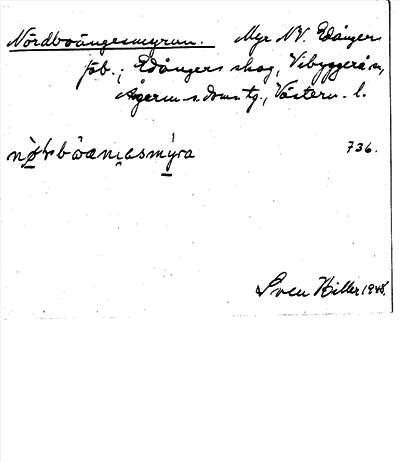 Nördboängesmyran. Myr NV. Edångers
fäb.; Edångers skog, Vibyggerå sn,
Ångerm-s doms tg., Västern. l.
736.
Sven Hiller 1948.